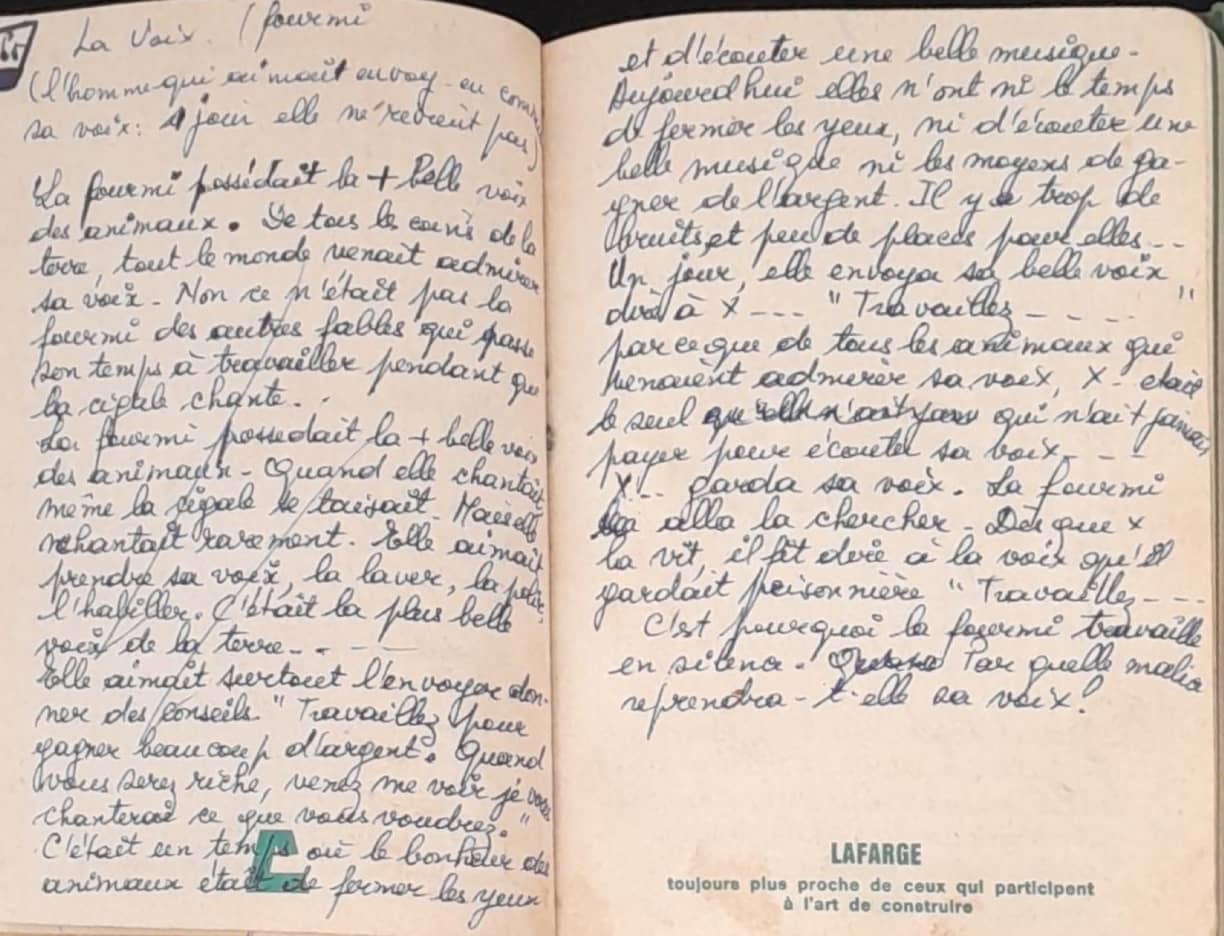 La Voix. (fourmi
(l'homme qui aimait envoy - en
sa voix: 1 jour elle ne revient pas)
La fourmi possédait la + belle voix
des animaux. De tous les coins de la
terre, tout le monde venait admirer
sa voix - Non ce n'était pas la
fourmi des autres fables qui passe
son temps à travailler pendant que
la cigale chante.
La fourmi possedait la + belle voix
des animaux - Quand elle chantait
même la cigale se taisait - Mais elle
chantait rarement. Elle aimait
prendre sa voix, la laver, la
l'habiller. C'était la plus belle
voix de la terre - - - -
Elle aimait surtout l'envoyer don-
ner des conseils. "Travaillez pour
gagner beaucoup d'argent. Quand
vous serez riche, venez me voir je vous
chanterai ce que vous voudrez."
C'était un temps où le bonheur des
animaux était de fermer les yeux
et d'écouter une belle musique -
Aujourd'hui elles n'ont ni le temps
de fermer les yeux, ni d'écouter une
belle musique ni les moyens de ga-
gner de l'argent. Il y a trop de
bruits et peu de places pour elles - -
Un jour, elle envoya sa belle voix
dire à X - - - - "Travaillez - - - - "
parce que de tous les animaux qui
venaient admirer sa voix, X - était
le seul qui n'ait jamais
payer pour écouter sa voix - - -
X - - garda sa voix. La fourmi
alla la chercher - Dès que X
la vit, il fit dire à la voix qu'il
gardait prisonnière "Travaillez - - -
C'est pourquoi la fourmi travaille
en silence. Par quelle malice
reprendra-t-elle sa voix!
LAFARGE
toujours plus proche de ceux qui participent
à l'art de construire